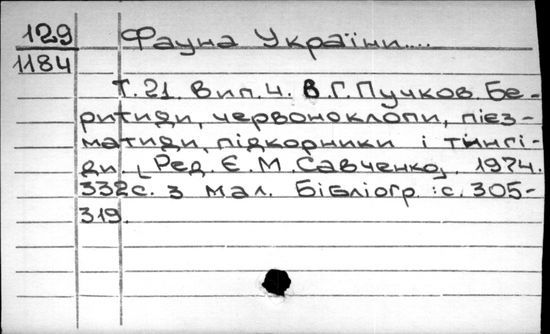 129 Фауна України....
1184
Т.21. Вип.4. В.Г.Пучков. Бе-
ритиди, червоноклопи, пієз-
матиди, підкорники і тингі-
ди. [Ред. Є.М.Савченко], 1974.
332с. з мал. Бібліогр.: с. 305-
319.